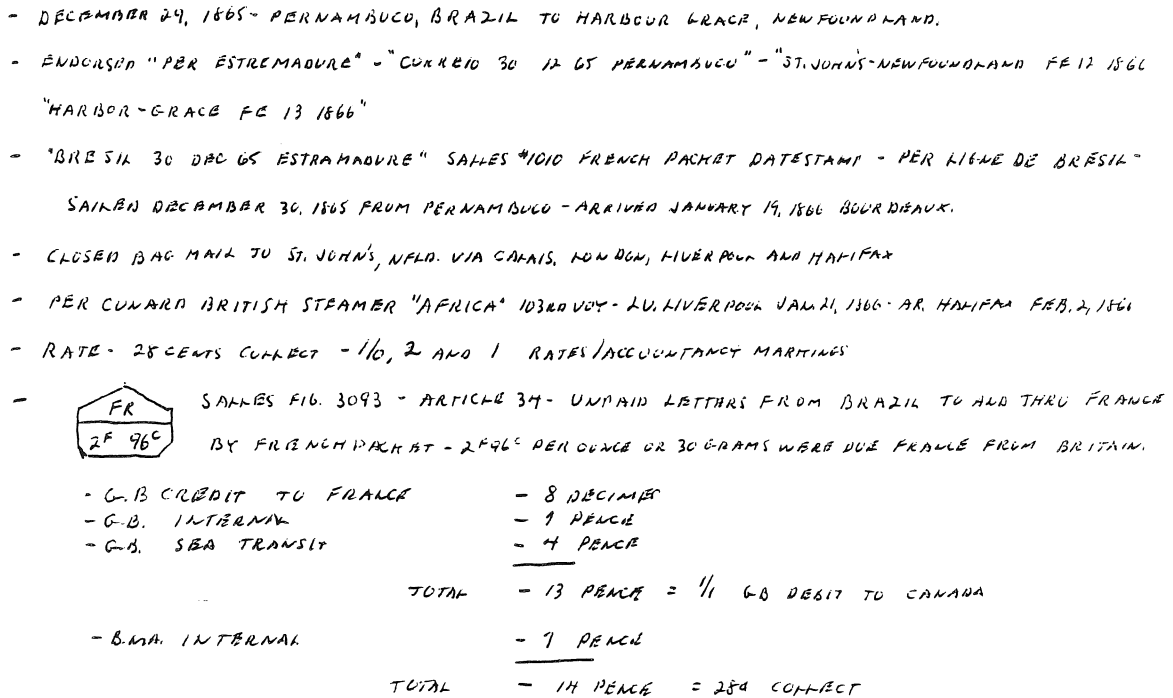 - DECEMBER 29, 1865- PERNAMBUCO, BRAZIL TO HARBOUR GRACE, NEWFOUNDLAND.
- ENDORSED "PER ESTREMADURE" - "CORREIO 30 12 65 PERNAMBUCO" - "ST. JOHN'S-NEWFOUNDLAND FE 12 1866
"HARBOR-GRACE FE 13 1866"
- "BRESIL 30 DEC 65 ESTRAMADURE" SALLES #1010 FRENCH PACKET DATESTAMP - PER LIGNE DE BRESIL -
SAILED DECEMBER 30, 1865 FROM PERNAMBUCO - ARRIVED JANUARY 19, 1866 BOURDEAUX.
- CLOSED BAG MAIL TO ST. JOHN'S, NFLD. VIA CALAIS, LONDON, LIVERPOOL AND HALIFAX
- PER CUNARD BRITISH STEAMER "AFRICA" 103RD VOY - LV. LIVERPOOL JAN 21, 1866 - AR. HALIFAX FEB. 2, 1866
- RATE - 28 CENTS COLLECT - 1/0, 2 AND 1 RATES/ACCOUNTANCY MARKINGS
- FR SALLES FIG. 3093 - ARTICLE 34 - UNPAID LETTERS FROM BRAZIL TO AND THRU FRANCE
2F 96C BY FRENCH PACKET - 2F96C PER OUNCE OR 30 GRAMS WERE DUE FRANCE FROM BRITAIN.
- G.B CREDIT TO FRANCE - 8 DECIMES
- G.B. INTERNAL - 1 PENCE
- G.B. SEA TRANSIT - 4 PENCE
TOTAL - 13 PENCE = 1/1 GB DEBIT TO CANADA
- B.N.A. INTERNAL - 1 PENCE
TOTAL - 14 PENCE = 28¢ COLLECT